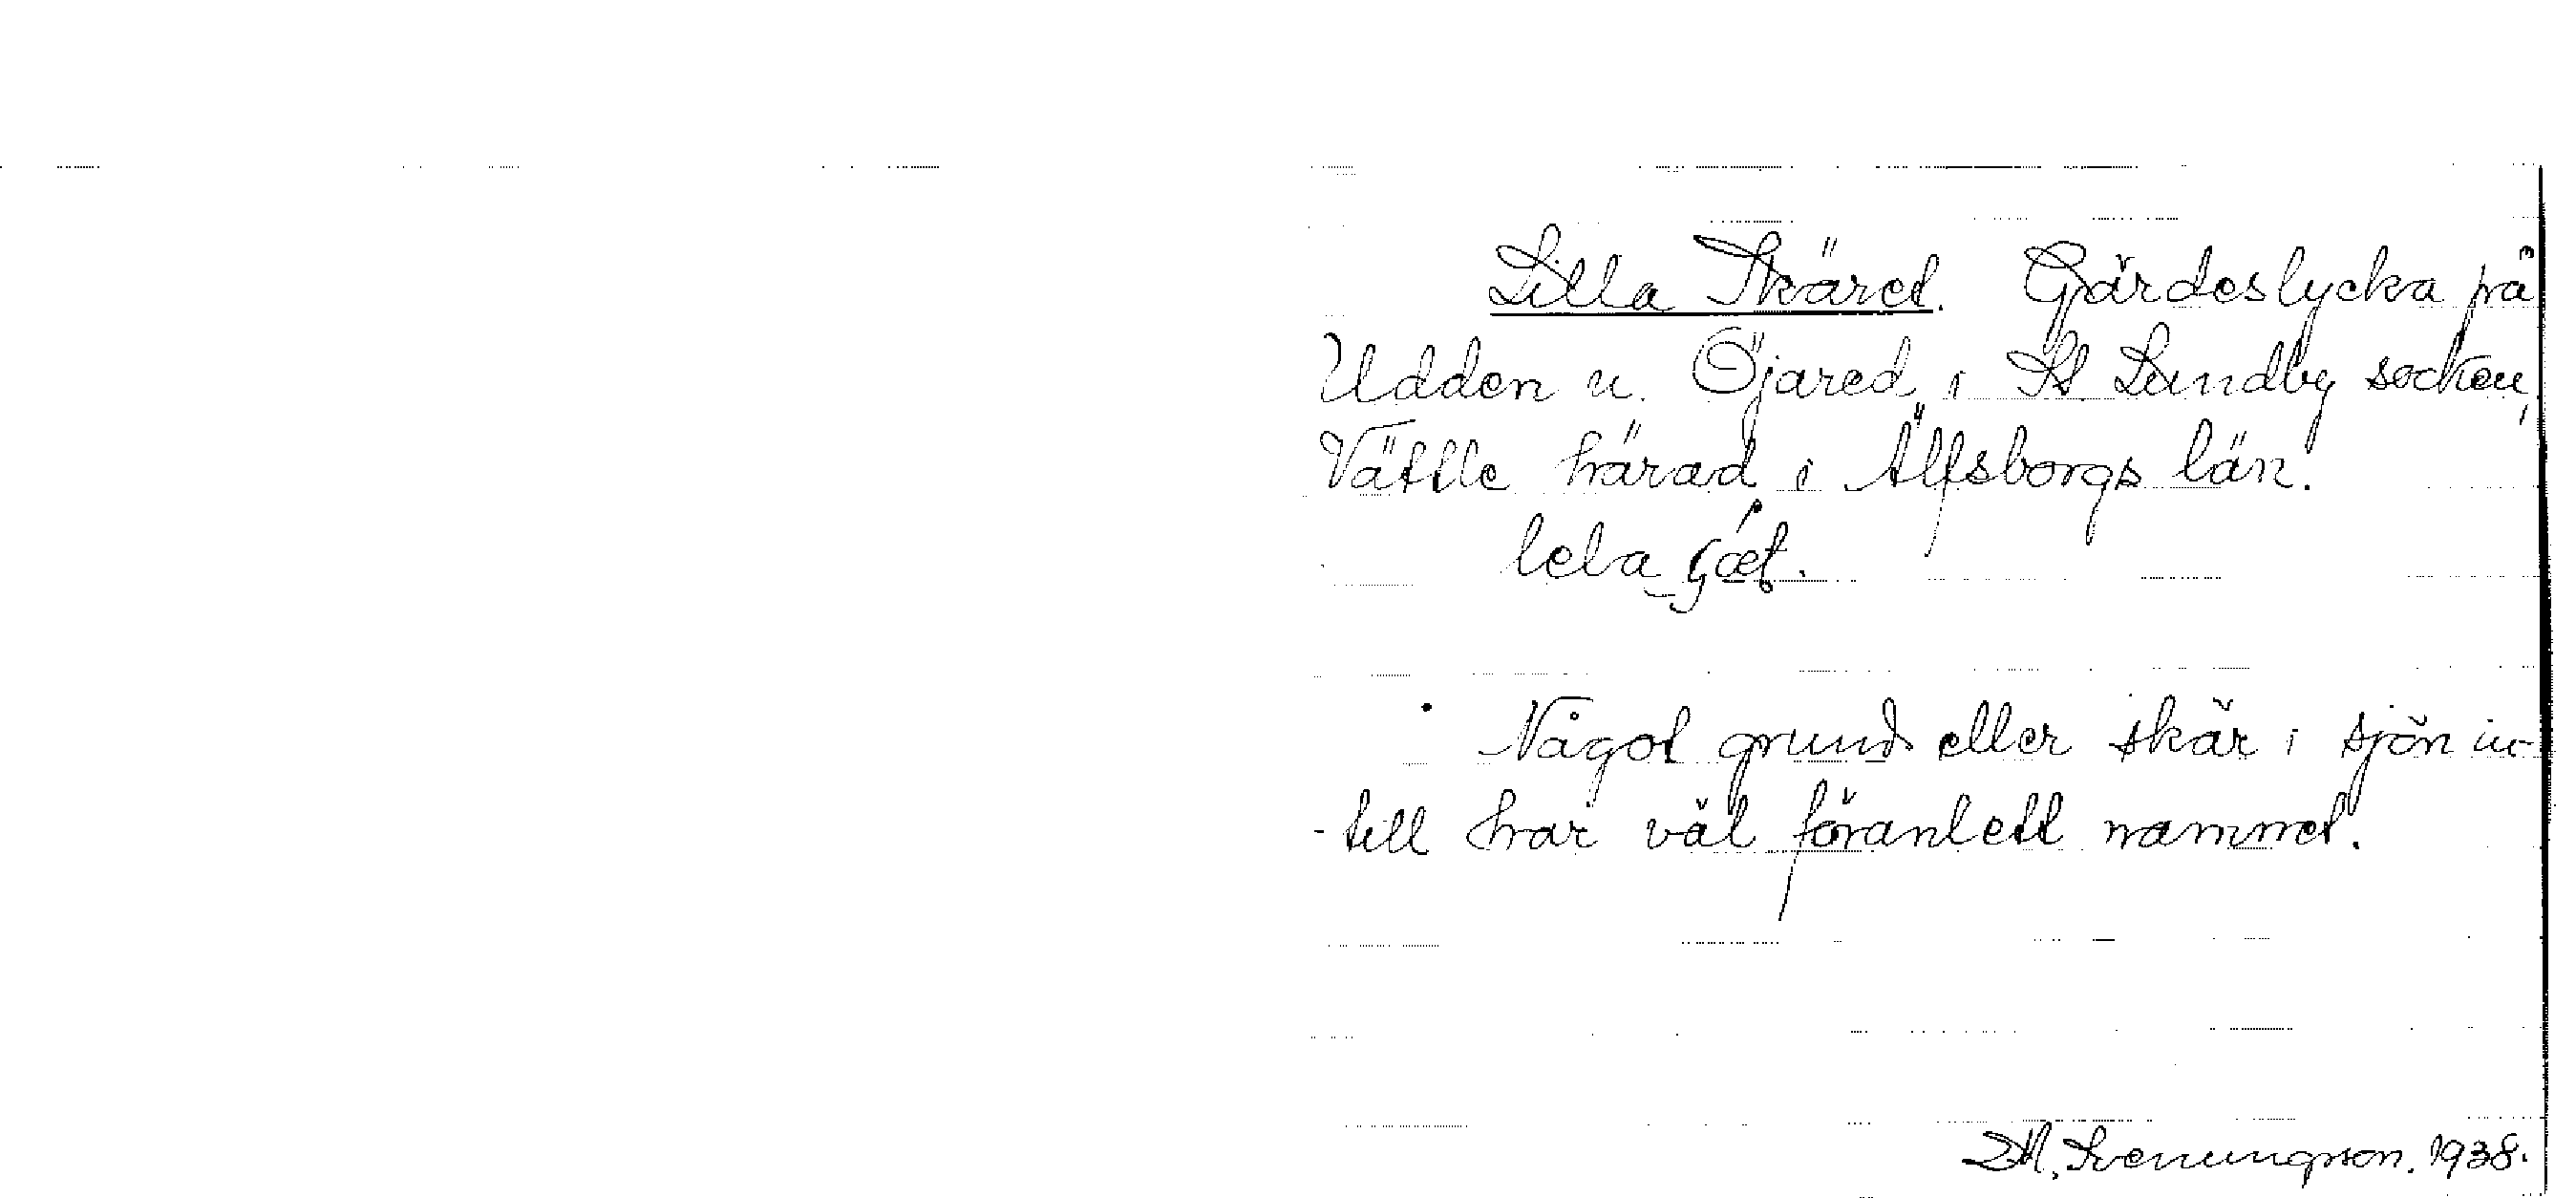 Lilla Skäret. Gärdeslycka på
Udden u. Öjared i St. Lundby socken,
Vättle härad i Älfsborgs län.
lela
Något grund eller skär i sjön in-
-till har väl föranlett namnet.
Svenungsson. 1938.